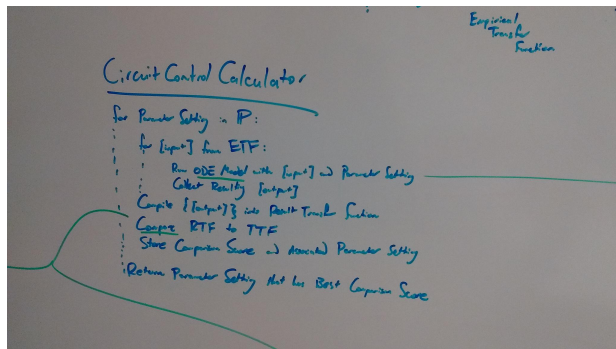 Empirical
Transfer
Function
Circuit Control Calculator
for Parameter Setting in IP:
for [input] from ETF:
Run ODE Model with [input] and Parameter Setting
Collect Resulting [output]
Compile {[output]} into Result Transfer function
Compare RTF to TTF
Store Comparison Score and Associated Parameter Setting
Return Parameter Setting that has Best Comparison Score